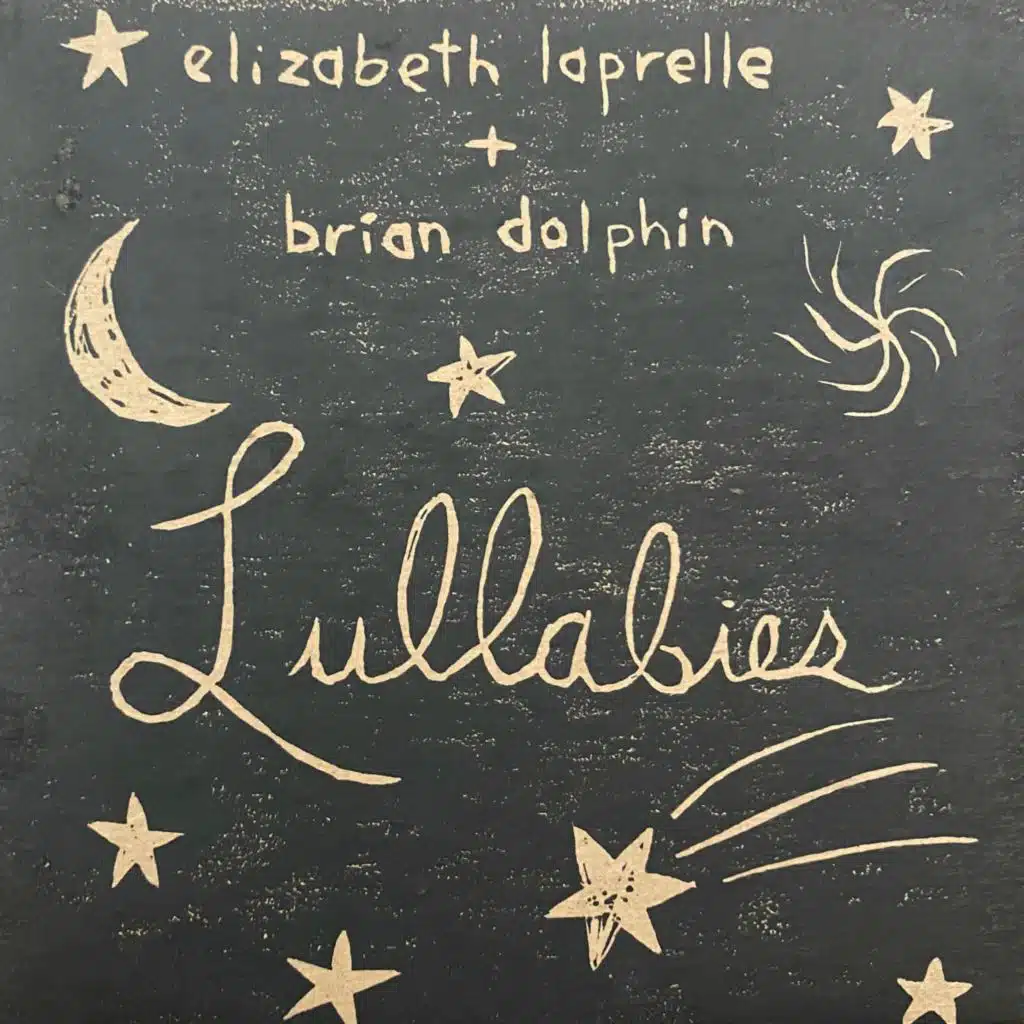 elizabeth laprelle
+
brian dolphin
Lullabies